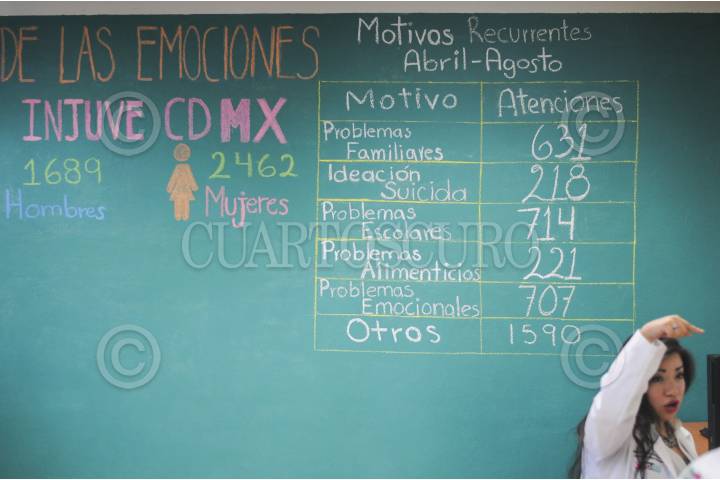 DE LAS EMOCIONES
INJUVE CDMX
1689
Hombres
2462
Mujeres
Motivos Recurrentes
Abril-Agosto
Motivo Atenciones
Problemas
Familiares 631
Ideación
Suicida 218
Problemas
Escolares 714
Problemas
Alimenticios 221
Problemas
Emocionales 707
Otros 1590
CUARTOSCURO
©
©
©
©